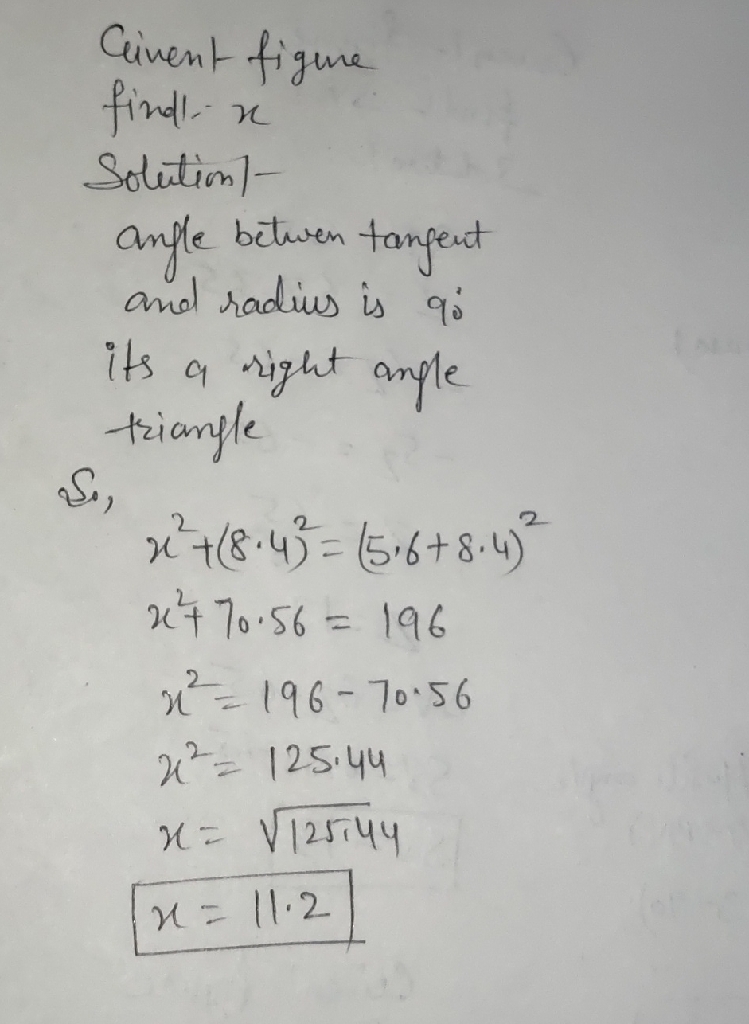 Given figure
find:- x
Solution:-
angle betwen tangent
and radius is 90°
its a right angle
triangle
So,
x² + (8.4)² = (5.6 + 8.4)²
x² + 70.56 = 196
x² = 196 - 70.56
x² = 125.44
x = √125.44
x = 11.2